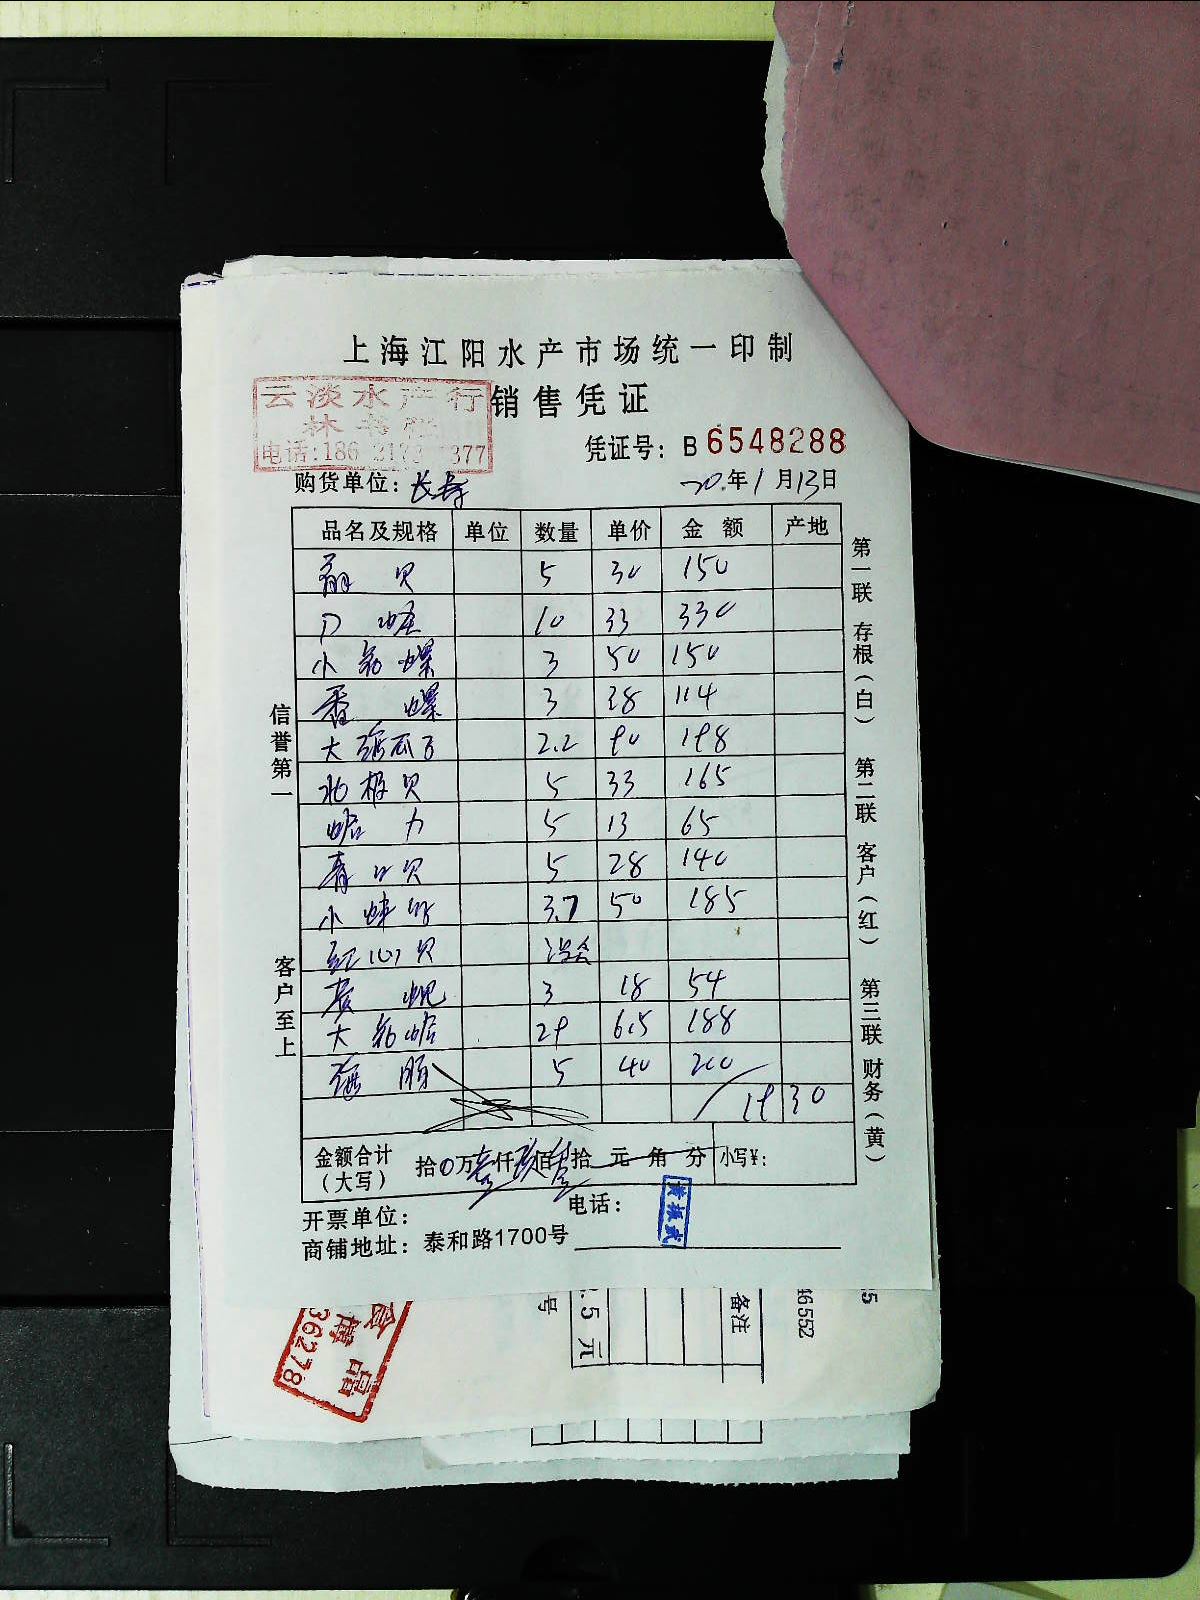 上海江阳水产市场统一印制
云淡水产行
销售凭证
电话:186 377
凭证号: B 6548288
购货单位: 长寿 20.年1月13日
品名及规格 单位 数量 单价 金额 产地
扇贝 5 30 150
10 33 330
小 螺 3 50 150
香螺 3 38 114
大海瓜子 2.2 90 198
北极贝 5 33 165
蛤力 5 13 65
青口贝 5 28 140
小 3.7 50 185
红心贝 没
黄蚬 3 18 54
大 蛤 29 6.5 188
海肠 5 40 200
1930
金额合计
(大写)
拾0万壹仟玖佰叁拾元角分 小写¥:
开票单位: 电话:
商铺地址: 泰和路1700号
信誉第一
客户至上
第一联 存根(白) 第二联 客户(红) 第三联 财务(黄)
36278
品
.5 元
号
备注
46552